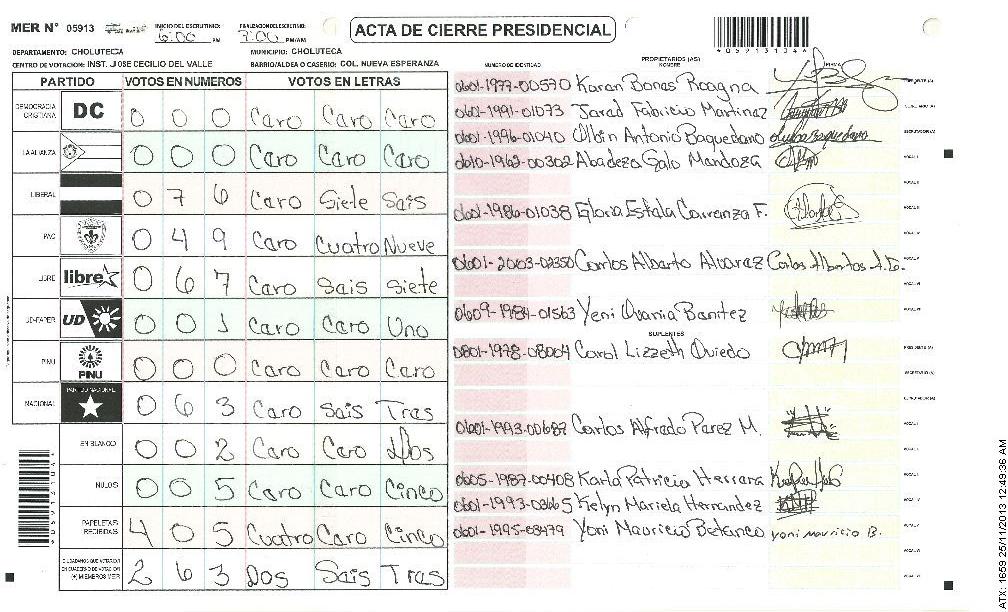 MER N° 05913
INICIO DEL ESCRUTINIO: 6:00 PM
FINALIZACION DEL ESCRUTINIO: 7:00 PM/AM
ACTA DE CIERRE PRESIDENCIAL
4059131044
DEPARTAMENTO: CHOLUTECA
MUNICIPIO: CHOLUTECA
CENTRO DE VOTACION: INST. JOSE CECILIO DEL VALLE
BARRIO/ALDEA O CASERIO: COL. NUEVA ESPERANZA
PARTIDO VOTOS EN NUMEROS VOTOS EN LETRAS
DEMOCRACIA CRISTIANA DC 0 0 0 Caro Caro Caro
LA ALIANZA 0 0 0 Caro Caro Caro
LIBERAL 0 7 6 Caro Siete Sais
PAC 0 4 9 Caro Cuatro Nueve
LIBRE libre 0 6 7 Caro Sais Siete
UD-FAPER UD 0 0 1 Caro Caro Uno
PINU PINU 0 0 0 Caro Caro Caro
NACIONAL PARTIDO NACIONAL 0 6 3 Caro Sais Tras
EN BLANCO 0 0 2 Caro Caro Dos
NULOS 0 0 5 Caro Caro Cinco
PAPELETAS RECIBIDAS 4 0 5 Cuatro Caro Cinco
CIUDADANOS QUE VOTARON EN CUADERNO DE VOTACION (+) MIEMBROS MER 2 6 3 Dos Sais Tras
NUMERO DE IDENTIDAD PROPIETARIOS (AS) NOMBRE FIRMA
0601-1977-00570 Karan Bonas Roagna
0601-1991-01073 Jarad Fabricio Martinaz
0601-1996-01040 Olbin Antonio Baquedano
0610-1962-00302 Abadeza Galo Mandoza
0601-1986-01038 Gloria Estala Carranza F.
0601-2003-02350 Carlos Albarto Alvaraz
0609-1984-01563 Yeni Ibania Banitez
SUPLENTES
0801-1978-08004 Carol Lizzeth Oviedo
0601-1993-00687 Carlos Alfrado Parez M.
0605-1987-00408 Karla Patricia Herrara
0601-1993-02665 Kelyn Mariela Herrandez
0601-1995-03479 Yoni Mauricio Betanco yoni mauricio B.
ATX: 1659 25/11/2013 12:49:36 AM